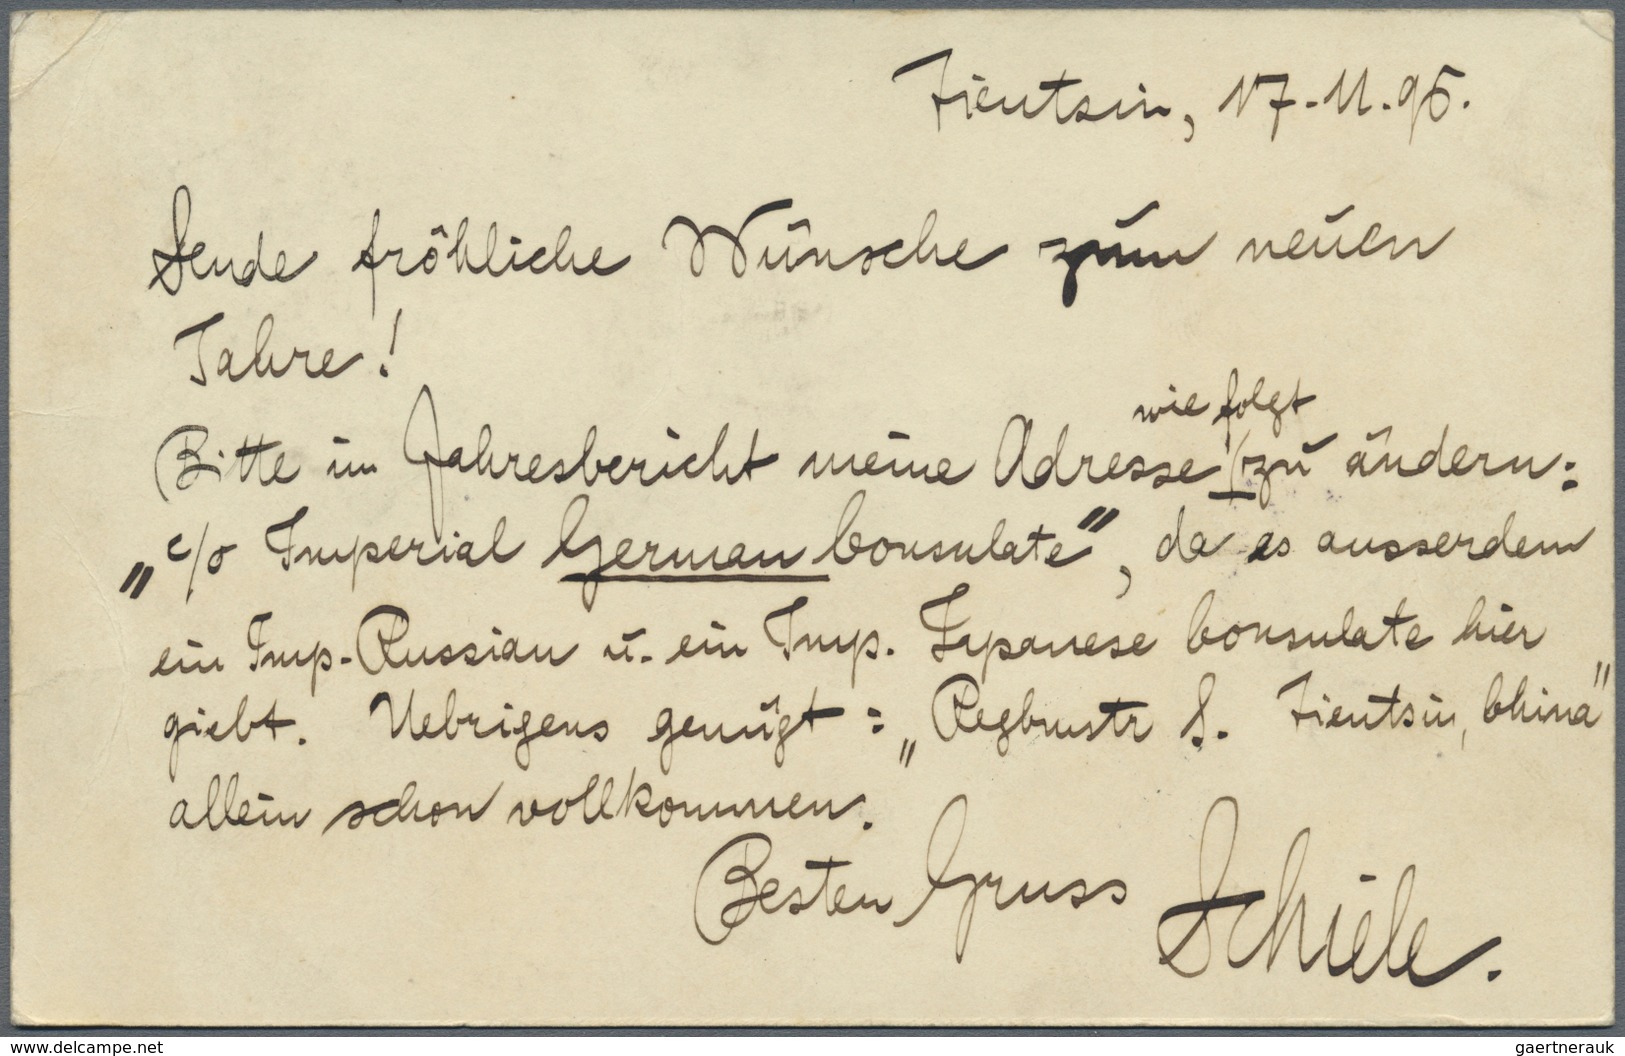 Tientsin, 17.11.96.
Sende fröhliche Wünsche zum neuen
Jahre!
wie folgt
Bitte im Jahresbericht meine Adresse zu ändern:
„c/o Imperial German Consulate", da es ausserdem
ein Imp. Russian u. ein Imp. Japanese Consulate hier
giebt. Uebrigens genügt: „Regbmstr S. Tientsin, China"
allein schon vollkommen.
Besten Gruss Schiele.
www.delcampe.net
gaertnerauk